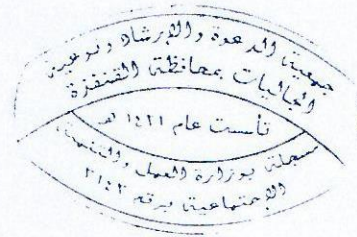 جمعية الدعوة والإرشاد وتوعية
الجاليات بمحافظة القنفذة
تأسست عام ١٤١١ هـ
مسجلة بوزارة العمل والتنمية
الاجتماعية برقم ٣١٤٢